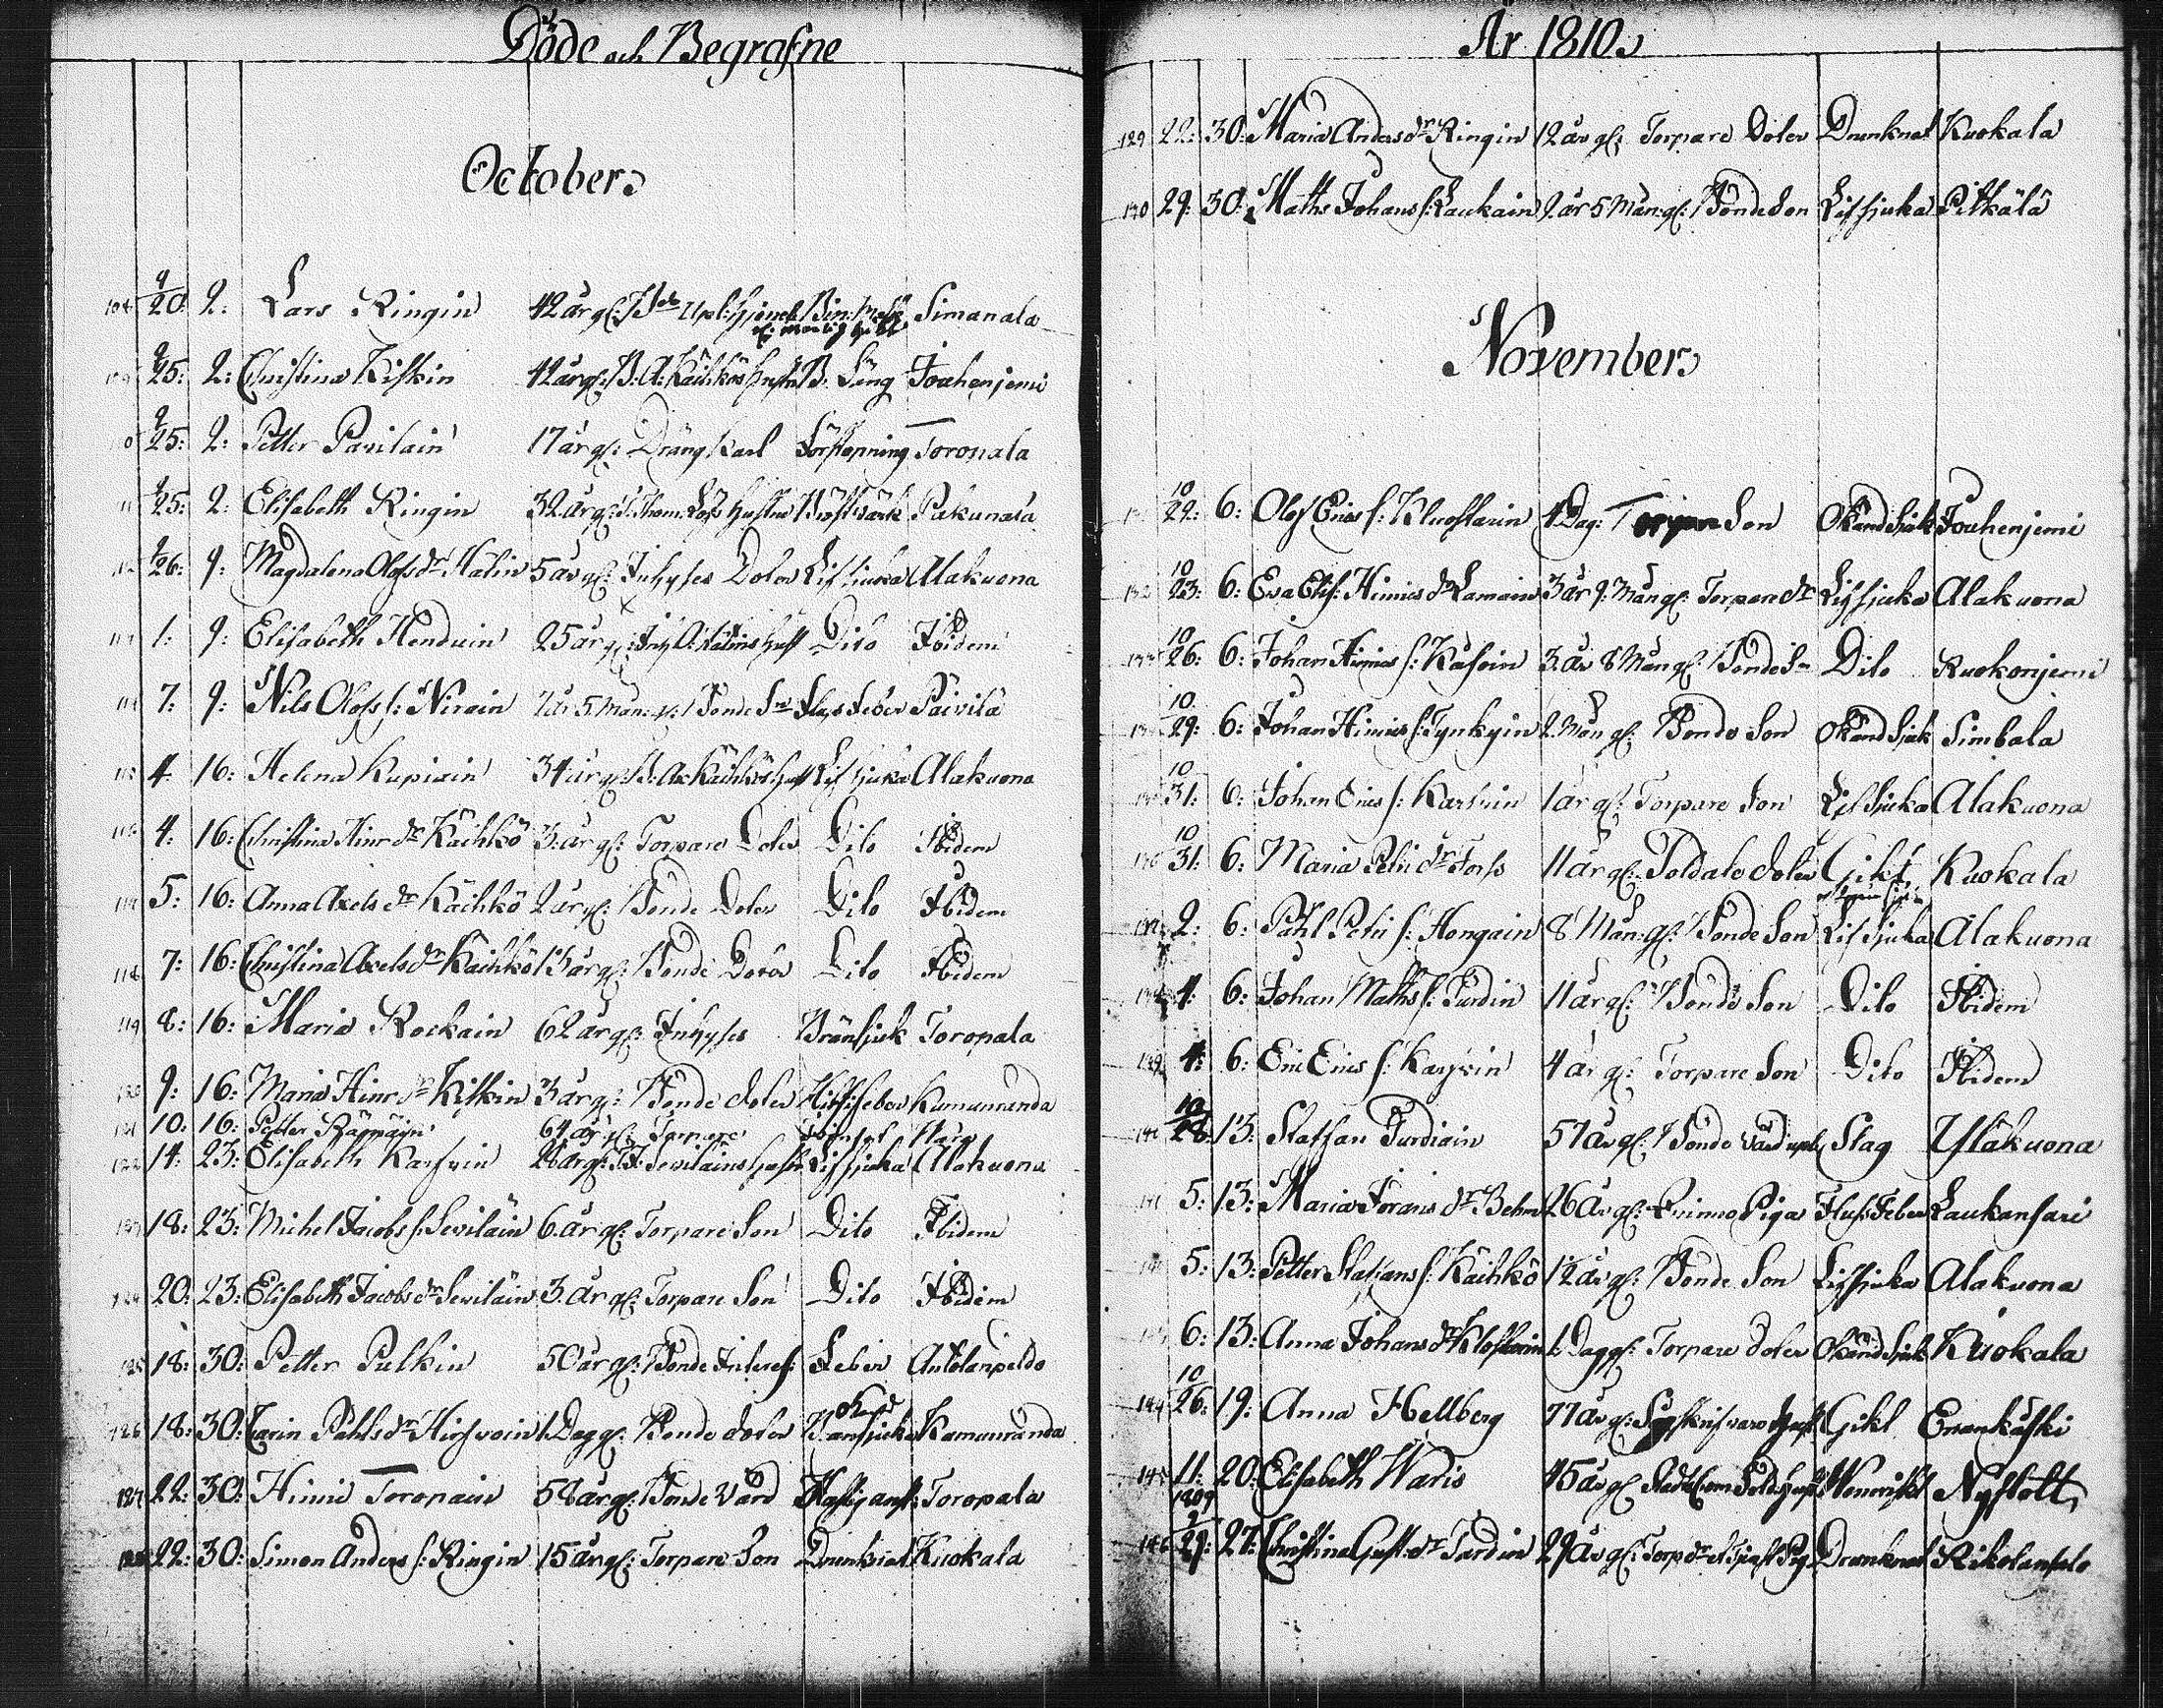 Döde och Begrafne
October
108 9/20 2: Lars Ringin 42 år gl: Simanala
9/25: 2: Christina Kiskin 42 år gl: B: A: Käihkös hustru B: Säng Jouhenjemi
9/25: 2: Petter Pavilain 17 år gl: Drängkarl Förstopning Toropala
9/25: 2: Elisabeth Ringin 32 år gl: hustru Pakunala
9/26: 9: Magdalena Olofs dr Hälin 5 år gl: Inhyses Doter Lifsjuka Alakuona
1: 9: Elisabeth Henduin 25 år gl: Inh: A: Hälins hust Dito Ibidem
7: 9: Nils Olofs s: Nirain 2 år 5 Mån: gl: Bonde Son Päivilä
4: 16: Helena Kupiain 34 år gl: B: Ax: Käihkös hust Lifsjuka Alakuona
4: 16: Christina Hinr dr Käihkö 3: år gl: Torpare Doter Dito Ibidem
5: 16: Anna Axels dr Käihkö 2 år gl: Bonde Doter Dito Ibidem
118 7: 16: Christina Axels dr Käihkö 13 år gl: Bonde Doter Dito Ibidem
119 8: 16: Maria Rockain 62 år gl: Inhyses Bränsjuk Toropala
9: 16: Maria Hinr dr Kiskin 3 år gl: Bonde doter Hitsifeber Kumuranda
121 10: 16: Petter Räppäin 64 år gl: Torpare
122 14: 23: Elisabeth Karsvin 26 år gl: Seviläins hust Lifsjuka Alakuona
123 18: 23: Michel Jacobs s: Seviläin 6. år gl: Torpare Son Dito Ibidem
124 20: 23: Elisabeth Jacobs dr Seviläin 3. år gl: Torpare Son Dito Ibidem
125 18: 30: Petter Pulkin 50 år gl: Bonde Inhyses: Feber Antolanpeldo
126 18: 30: Carin Påhls dr Hirsvoin 1. Dag gl: Bonde doter Okänd Barnsjuka Kamuranda
127 22: 30: Hinric Toropain 58 år gl: Bonde Värd Toropala
128 22: 30: Simon Anders s: Ringin 15 år gl: Torpare Son Drunknat Kuokala
År 1810
129 22: 30: Maria Anders dr Ringin 12 år gl: Torpare Doter Drunknat Kuokala
130 29: 30: Maths Johans s: Laukain 2 år 5 Mån: gl: Bonde Son Lifsjuka Pitkälä
November
10/29: 6: Olof Erics s: Kluostarin 4 Dag: Son Okänd Sjuk Jouhenjemi
132 10/23: 6: Eva Elis: Hinrics dr Lamain 3 år 9: Mån gl: Torpare dr Lifsjuka Alakuona
133 10/26: 6: Johan Hinrics s: Käsoin 3. år 8 Mån gl: Bonde Son Dito Ruokonjemi
134 10/29: 6: Johan Hinrics s: Tynkyin 2. Mån gl: Bonde Son Okänd Sjuk Simbala
135 10/31: 6: Johan Erics s: Karsvin 1 år gl: Torpare Son Lifsjuka Alakuona
136 10/31: 6: Maria Petri dr Forss 11 år gl: Soldate doter Gikt Kuokala
137 2: 6: Påhl Petri s: Hongain 8 Mån: gl: Bonde Son Lifsjuka Alakuona
138 4: 6: Johan Maths s: Turdin 11 år gl: Bonde Son Dito Ibidem
139 4: 6: Eric Erics s: Karsvin 4 år gl: Torpare Son Dito Ibidem
140 10/28 13: Staffan Turdiain 57 år gl: Bonde Slag Yläkuona
141 5: 13: Maria Jörans dr Behm 26 år gl: Qvinno Piga Fluss Feber Laukansari
142 5: 13: Petter Staffans s: Käihkö 12 år gl: Bonde Son Lifsjuka Alakuona
143 6: 13: Anna Johans dr Klostarin 1. Dag gl: Torpare doter Okänd Sjuk Kuokala
144 10/26: 19: Anna Hellberg 77 år gl: hust Gikt Enonkåski
145 11: 20: Elisabeth Waris 45 år gl: Nyslott
146 1809 2/29: 27: Christina Gust: dr Turdin 29 år gl: Torp dr Drunknat Rikolansalo